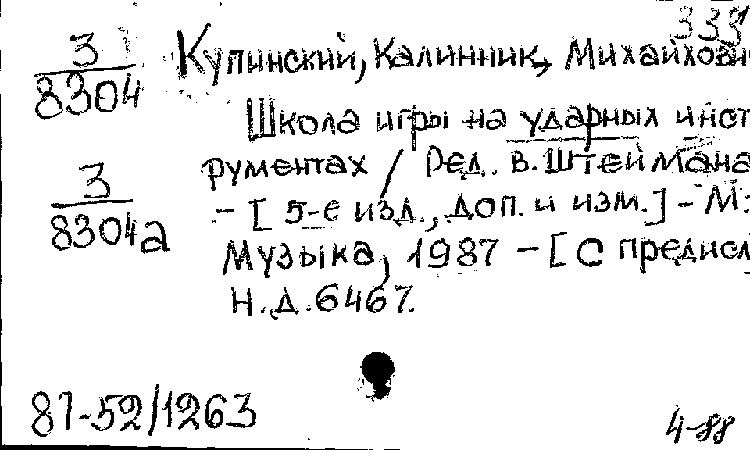 333
3/8304 Купинский, Калинник, Михайлови
Школа игры на ударных инст
3/8304а рументах / Ред. В. Штеймана
- [5-е изд., доп. и изм.] - М:
Музыка, 1987 - [С предисл
Н.Д. 6467.
87-52/1263
4-88